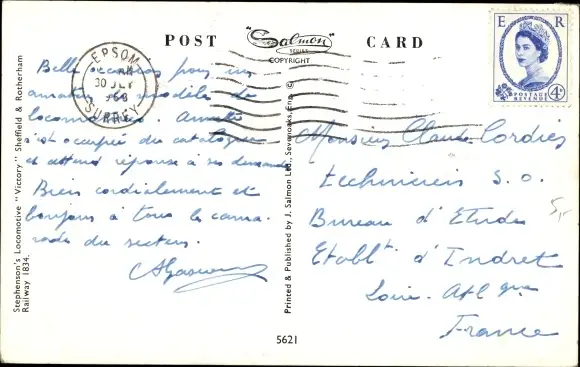 POST "Salmon" SERIES CARD
COPYRIGHT
E R
POSTAGE REVENUE 4D
EPSOM
30 JLY
1960
SURREY
Belle occasion pour un
amateur modèle de
locomotive. Amitié
s'est occupée du catalogue
et attend réponse à ses demandes
Bien cordialement et
bonjour à tous les cama-
rades du secteur.
Monsieur Claude Cordier
technicien S.O.
Bureau d'Etudes
Etablt. d'Indret
Loire-Atlque
France
5,-
Stephenson's Locomotive "Victory" Sheffield & Rotherham
Railway 1834.
Printed & Published by J. Salmon Ltd., Sevenoaks, Eng. ©
5621